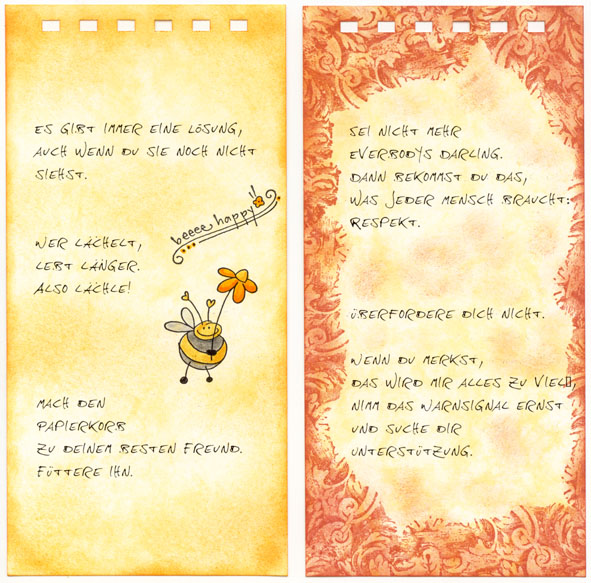 ES GIBT IMMER EINE LÖSUNG,
AUCH WENN DU SIE NOCH NICHT
SIEHST.
beeee happy!!
WER LÄCHELT,
LEBT LÄNGER.
ALSO LÄCHLE!
MACH DEN
PAPIERKORB
ZU DEINEM BESTEN FREUND.
FÜTTERE IHN.
SEI NICHT MEHR
EVERBODYS DARLING.
DANN BEKOMMST DU DAS,
WAS JEDER MENSCH BRAUCHT:
RESPEKT.
ÜBERFORDERE DICH NICHT.
WENN DU MERKST,
DAS WIRD MIR ALLES ZU VIEL▯,
NIMM DAS WARNSIGNAL ERNST
UND SUCHE DIR
UNTERSTÜTZUNG.